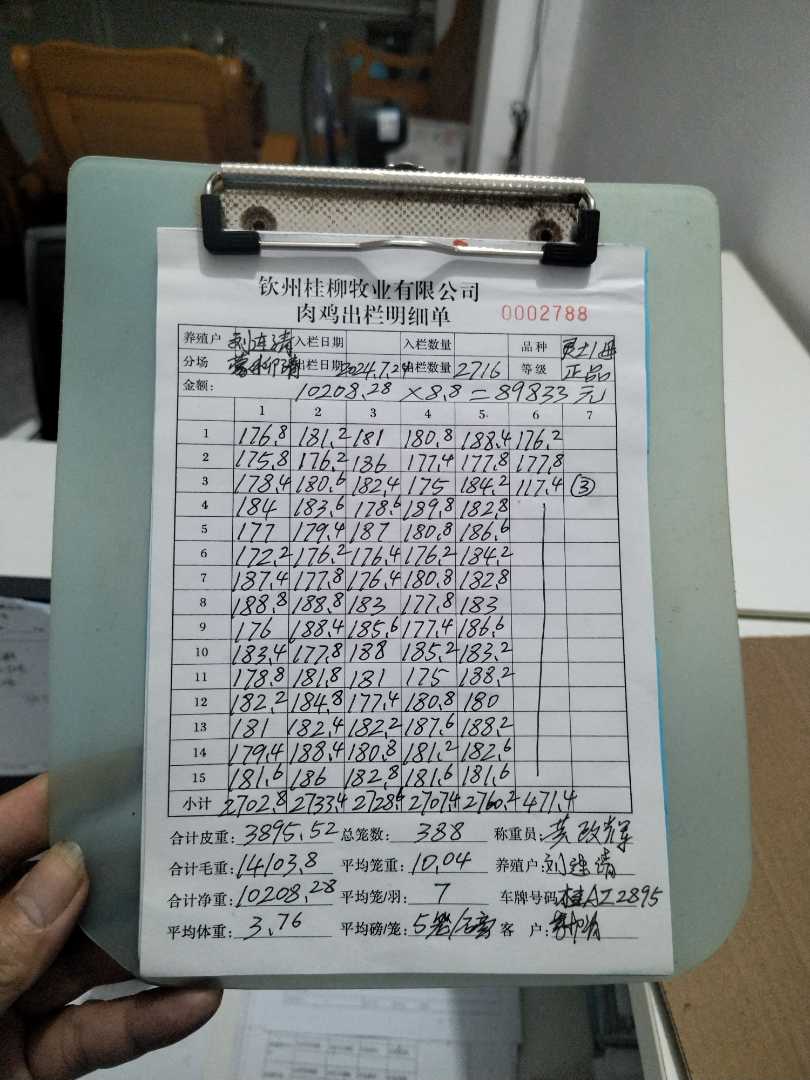 钦州桂柳牧业有限公司
肉鸡出栏明细单 0002788
养殖户 刘连清 入栏日期 入栏数量 品种
分场 出栏日期 2024.7.29 出栏数量 2716 等级 正品
金额: 10208.28 × 8.8 = 89833 元
1 2 3 4 5 6 7
1 176.8 181.2 181 180.8 188.4 176.2
2 175.8 176.2 186 177.4 177.8 177.8
3 178.4 180.6 182.4 175 184.2 117.4 ③
4 184 183.6 178.6 189.8 182.8
5 177 179.4 187 180.8 186.6
6 172.2 176.2 176.4 176.2 184.2
7 187.4 177.8 176.4 180.8 182.8
8 188.8 188.8 183 177.8 183
9 176 188.4 185.6 177.4 186.6
10 183.4 177.8 188 185.2 183.2
11 178.8 181.8 181 175 188.2
12 182.2 184.8 177.4 180.8 180
13 181 182.4 182.2 187.6 188.2
14 179.4 188.4 180.8 181.2 182.6
15 181.6 186 182.8 181.6 181.6
小计 2702.8 2733.4 2728.6 2707.4 2760.2 471.4
合计皮重: 3895.52 总笼数: 388 称重员:
合计毛重: 14103.8 平均笼重: 10.04 养殖户: 刘连清
合计净重: 10208.28 平均笼/羽: 7 车牌号码: 桂AZ2895
平均体重: 3.76 平均磅/笼: 5笼/磅 客 户: